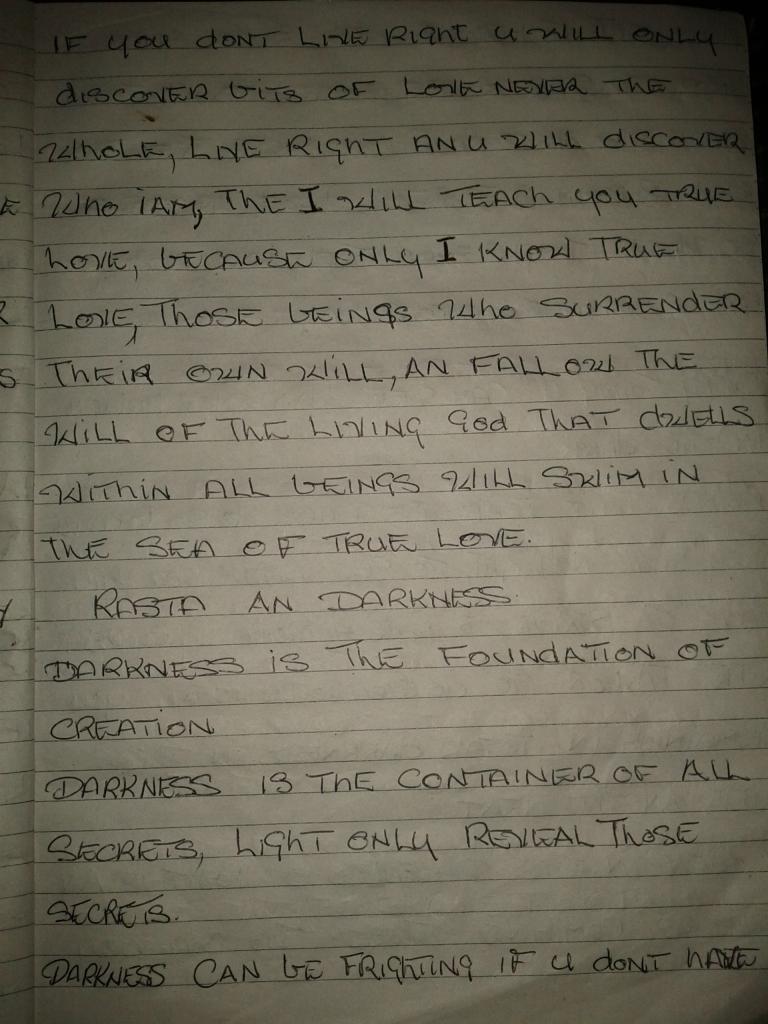 IF you dONT LIVE RigHT u WILL ONLY
discOVER biTs OF LOVE NEVER THE
WhOLE, LIVE RIGhT AN u WILL discOVER
Who iAM, THE I WILL TEACH you TRUE
LOVE, bECAUSE ONLy I KNOW TRUE
LOVE, THOSE bEiNgs Who SURRENdER
THEIR OWN WILL, AN FALLOW THE
WiLL OF THE LIVING God THAT dWELLS
WiThiN ALL bEINGS WILL SWIM IN
THE SEA OF TRUE LOVE.
RASTA AN DARKNESS.
DARKNESS is THE FOUNDATION OF
CREATION
DARKNESS IS THE CONTAINER OF ALL
SECRETS, LIGhT ONLY REVEAL THOSE
SECRETS.
DARKNESS CAN bE FRIGHTING IF u dONT HAVE